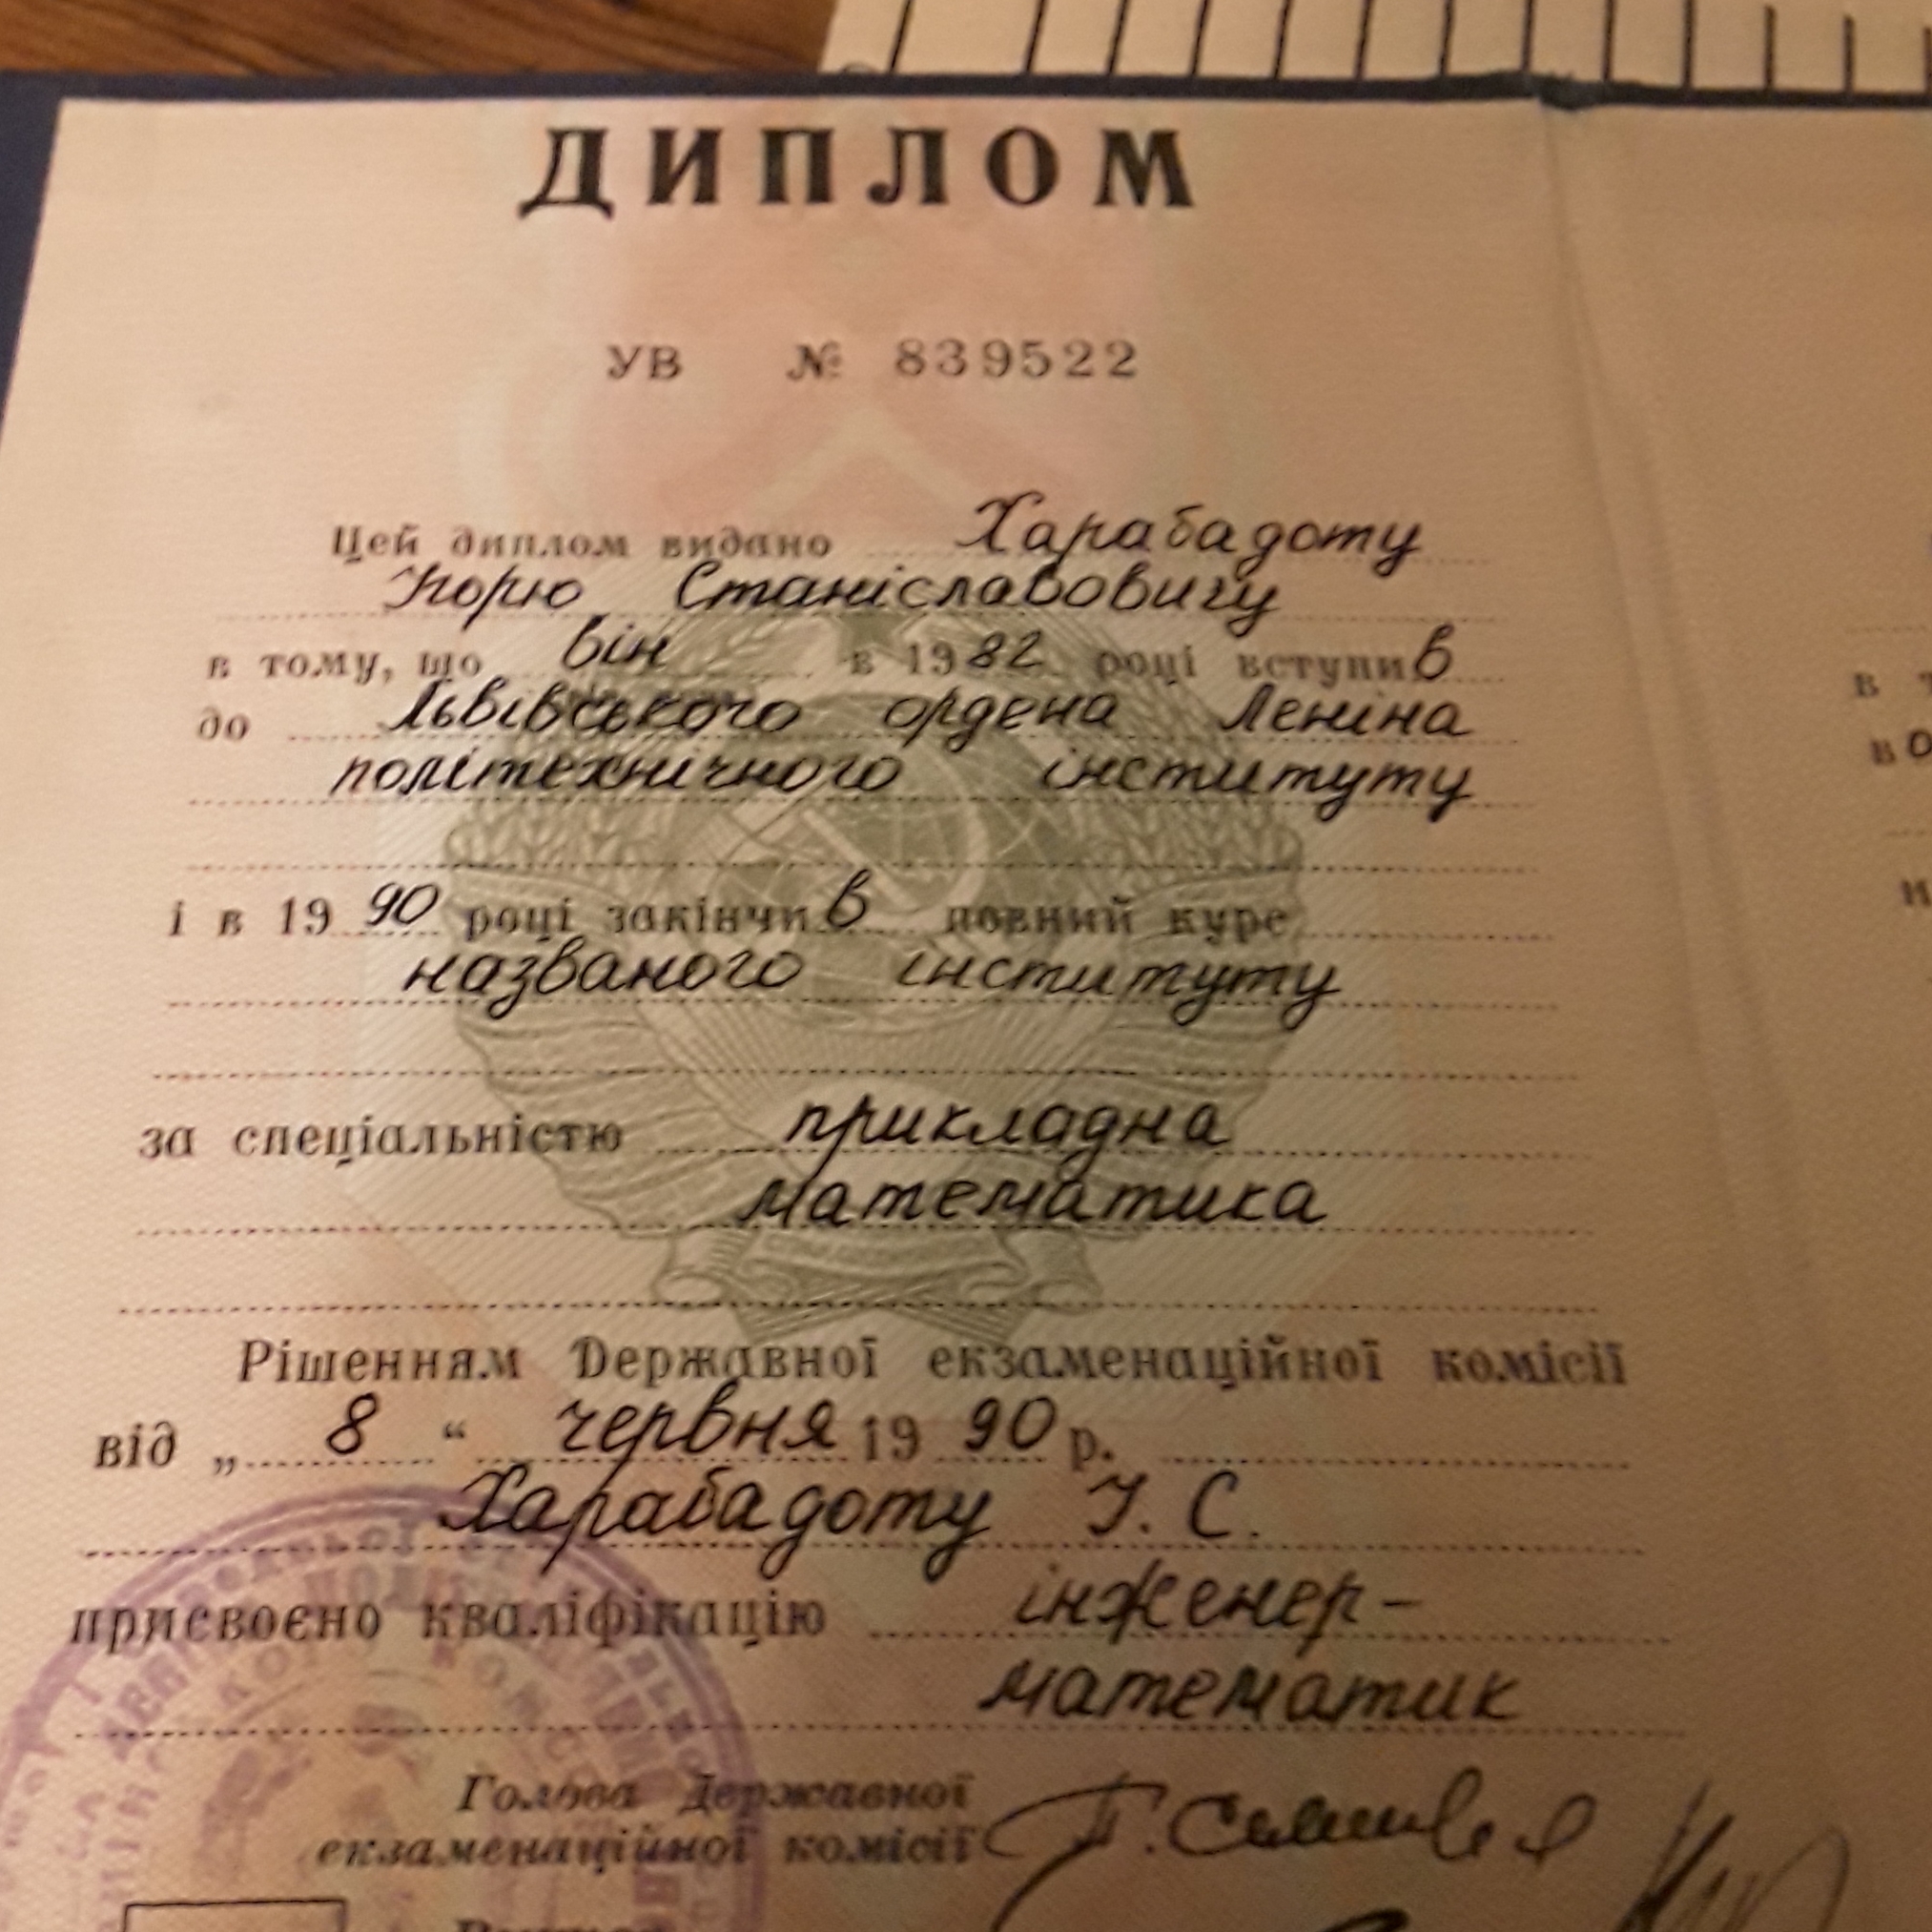 ДИПЛОМ
УВ № 839522
Цей диплом видано Харабадоту
Ігорю Станіславовичу
в тому, що він в 1982 році вступив
до Львівського ордена Леніна
політехнічного інституту
і в 1990 році закінчив повний курс
названого інституту
за спеціальністю прикладна
математика
Рішенням Державної екзаменаційної комісії
від „ 8 “ червня 1990 р.
Харабадоту І. С.
присвоєно кваліфікацію інженер-
математик
Голова Державної
екзаменаційної комісії